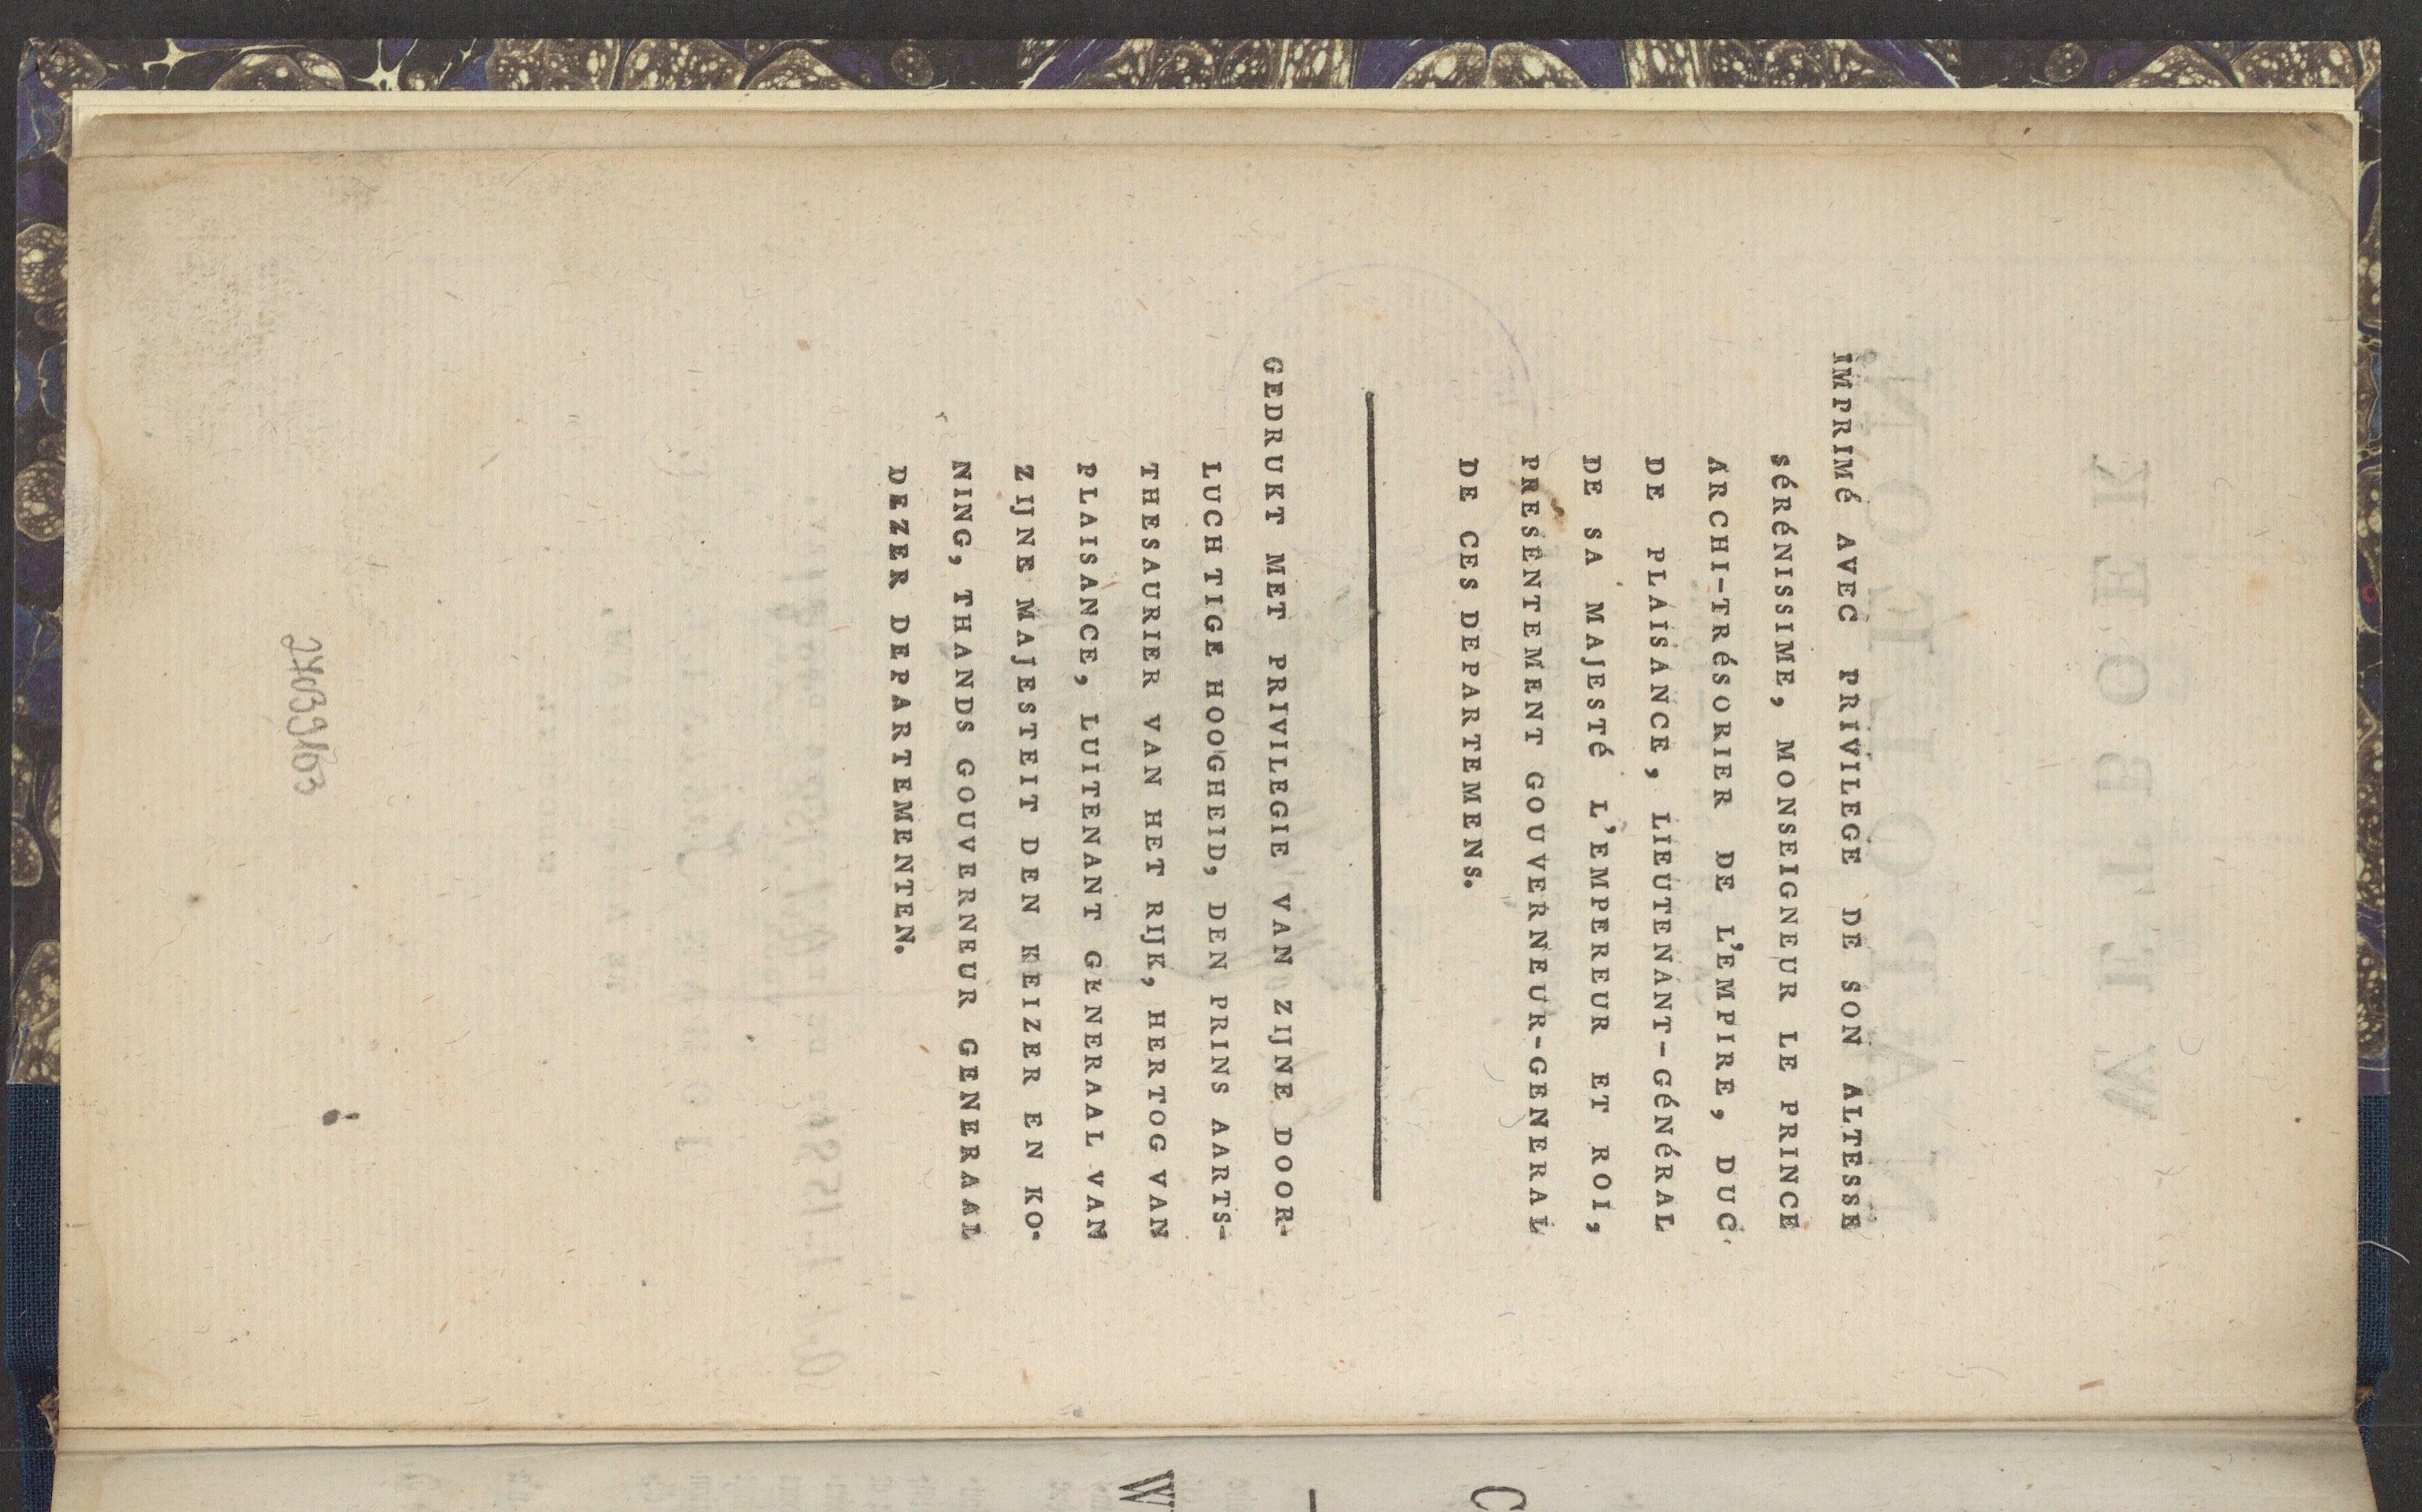 IMPRIMé AVEC PRIVILEGE DE SON ALTESSE
SéRéNISSIME, MONSEIGNEUR LE PRINCE
ARCHI-TRéSORIER DE L'EMPIRE, DUC
DE PLAISANCE, LIEUTENANT-GéNéRAL
DE SA MAJESTé L'EMPEREUR ET ROI,
PRESENTEMENT GOUVERNEUR-GENERAL
DE CES DEPARTEMENS.
GEDRUKT MET PRIVILEGIE VAN ZIJNE DOOR-
LUCHTIGE HOOGHEID, DEN PRINS AARTS-
THESAURIER VAN HET RIJK, HERTOG VAN
PLAISANCE, LUITENANT GENERAAL VAN
ZIJNE MAJESTEIT DEN KEIZER EN KO-
NING, THANDS GOUVERNEUR GENERAAL
DEZER DEPARTEMENTEN.